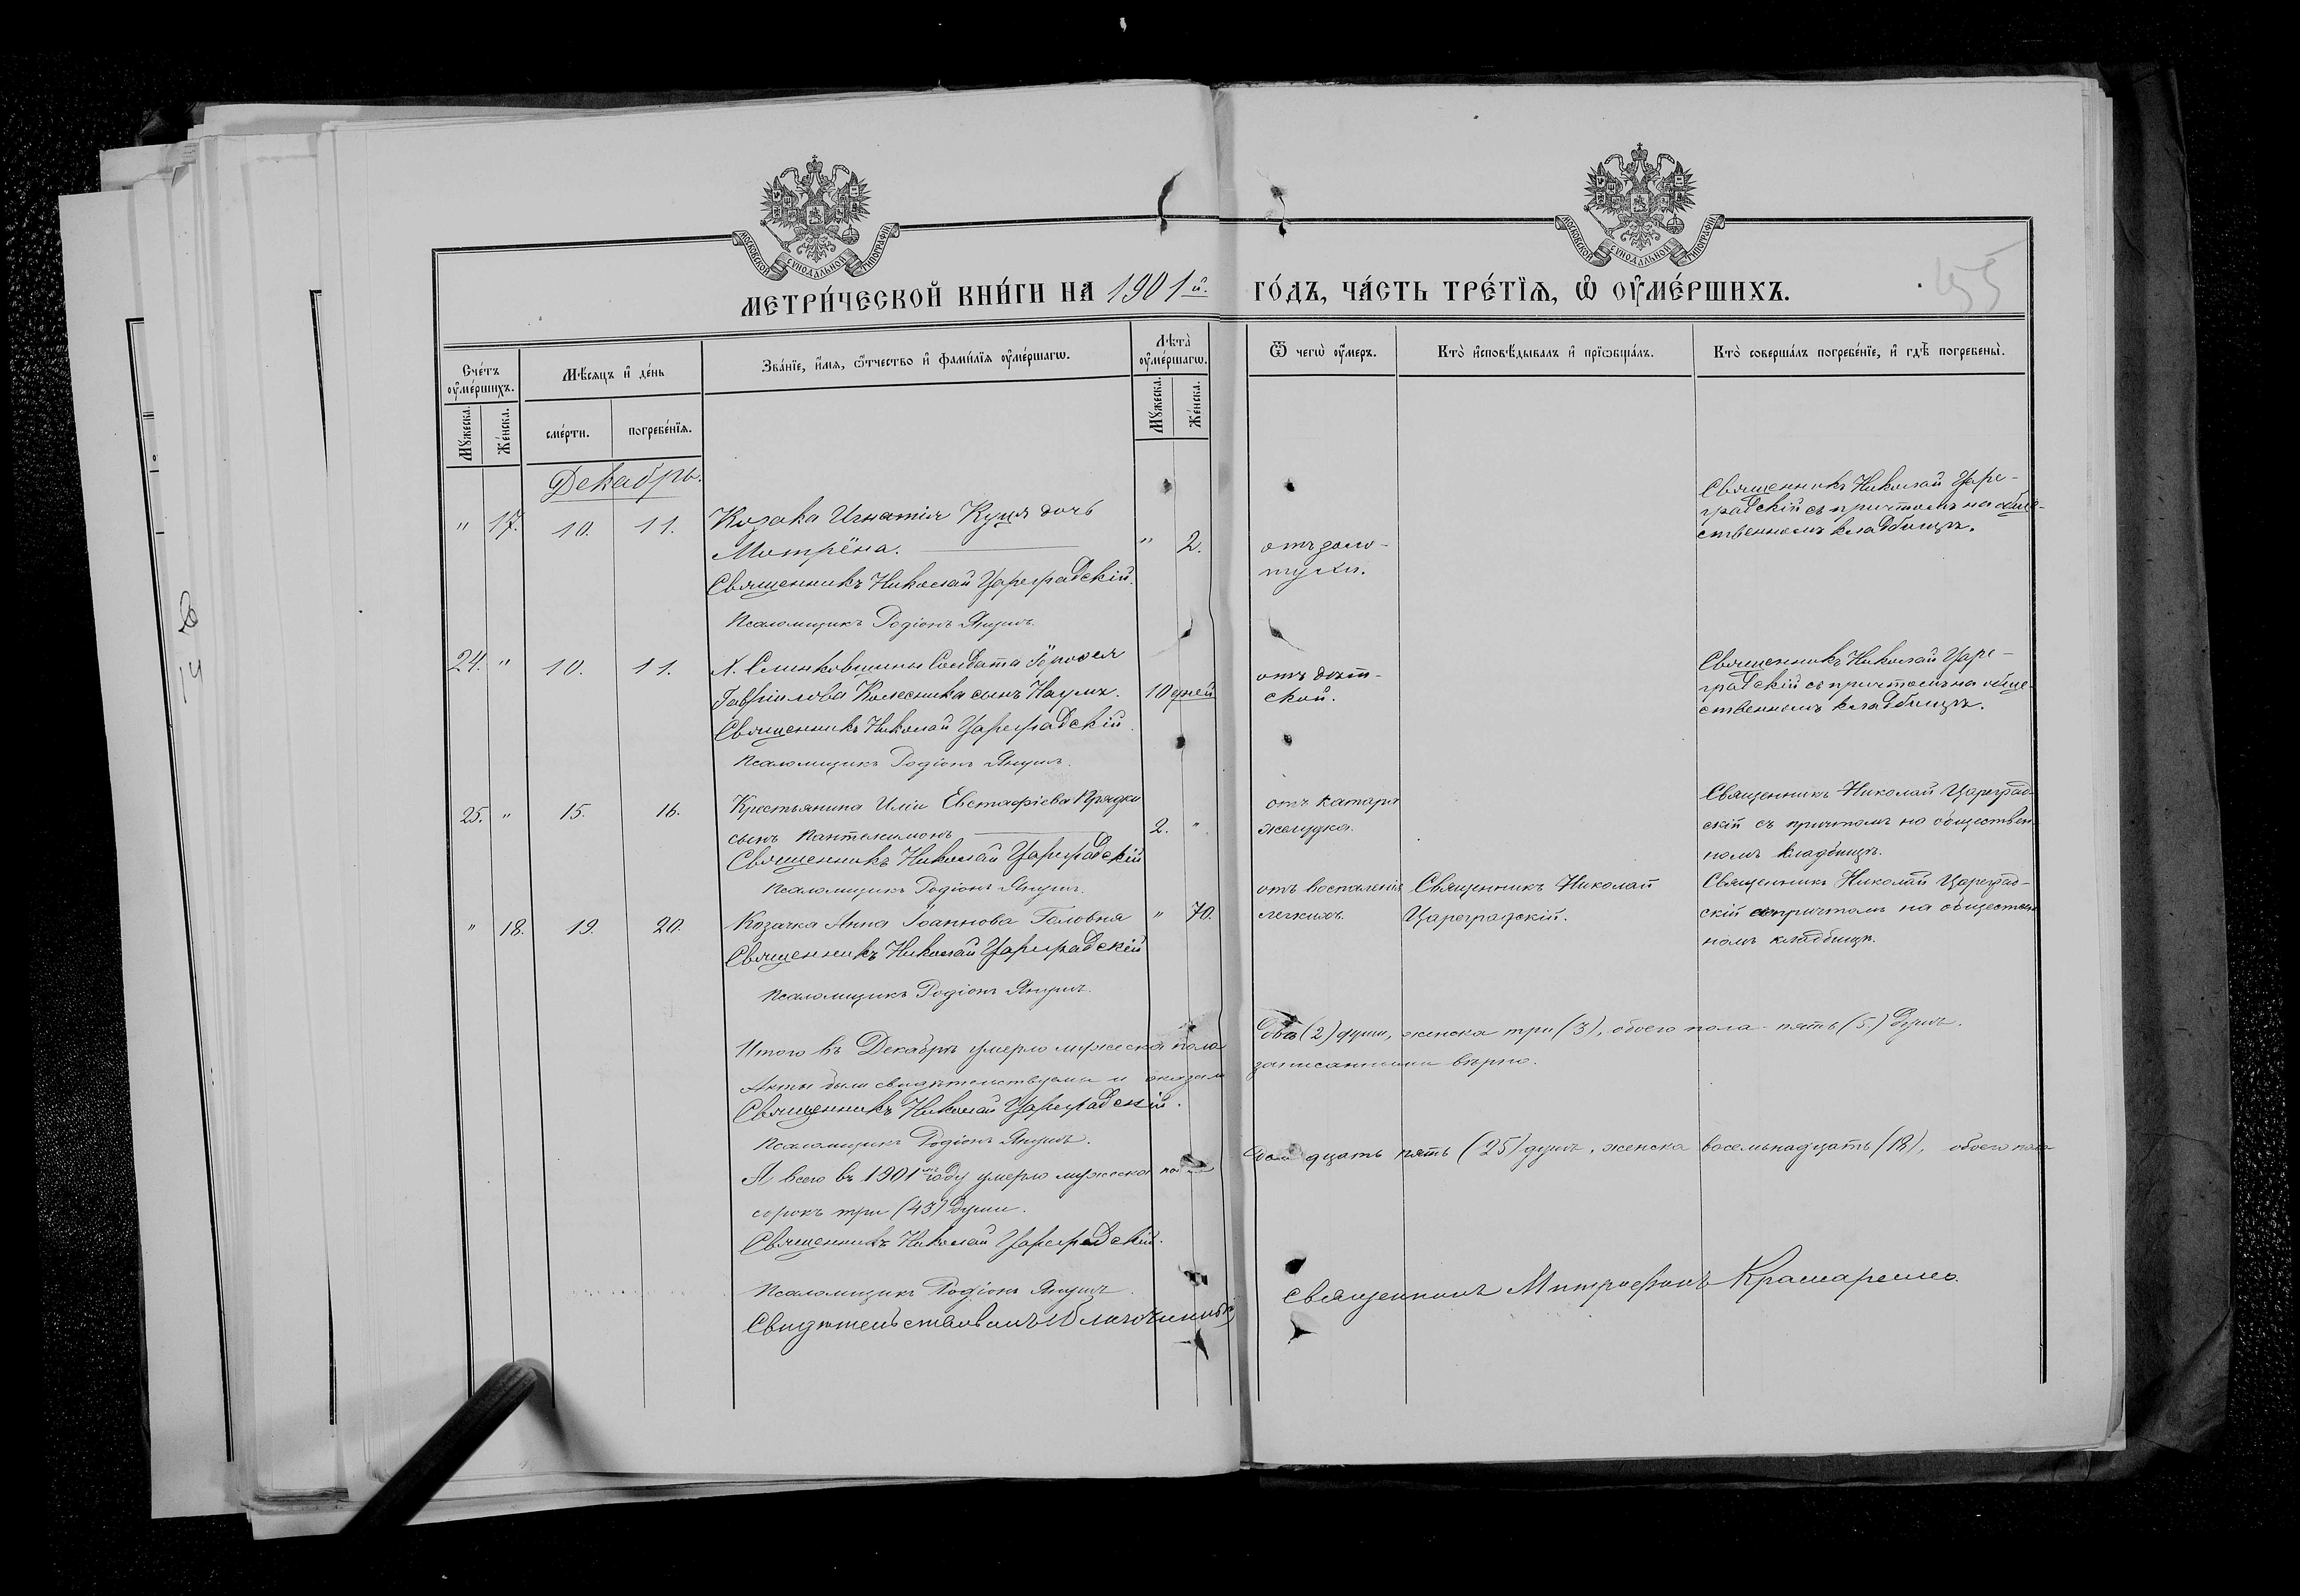 МОСКОВСКОЙ СѴНОДАЛЬНОЙ ТИПОГРАФІИ
МОСКОВСКОЙ СѴНОДАЛЬНОЙ ТИПОГРАФІИ
МЕТРИ́ЧЕСКОЙ КНИ́ГИ НА 1901й.
ГО́ДЪ, ЧА́СТЬ ТРЕ́ТЇѦ, Ѡ҆ ОУ҆МЕ́РШИХЪ.
Сче́тъ оу҆ме́ршихъ.
Мꙋ́жеска.
Же́нска.
Мѣ́сяцъ и҆ де́нь
сме́рти.
погребе́нїѧ.
Зва́нїе, и҆́мѧ, ѻ҆́тчество и҆ фами́лїѧ оу҆ме́ршагѡ.
Лѣ́та̀ оу҆ме́ршагѡ.
Мꙋ́жеска.
Же́нска.
Ѿ чегѡ̀ оу҆́меръ.
Кто̀ и҆сповѣ́дывалъ и҆ прїѡбща́лъ.
Кто̀ соверша́лъ погребе́нїе, и҆ гдѣ̀ погребены̀.
Декабрь.
" 17. 10. 11. Козака Игнатія Куця дочь
Мотрёна. " 2.
Священникъ Николай Цареградскій.
Псаломщикъ Родіонъ
отъ золо-
тухи.
Священникъ Николай Царе-
градскій съ причтомъ на обще-
ственномъ кладбищѣ.
24. " 10. 11. Х. Слинковщины Солдата
Гавріилова Колесника сынъ Наумъ. 10 дней
Священникъ Николай Цареградскій.
Псаломщикъ Родіонъ
отъ дѣт-
ской.
Священникъ Николай Царе-
градскій съ причтомъ на обще-
ственномъ кладбищѣ.
25. " 15. 16. Крестьянина Иліи Евстафіева Прядки
сынъ Пантелимонъ 2. "
Священникъ Николай Цареградскій
Псаломщикъ Родіонъ
отъ катарра
желудка.
Священникъ Николай Цареград-
скій съ причтомъ на обществен-
номъ кладбищѣ.
" 18. 19. 20. Козачка Анна Іоаннова Головня " 70.
Священникъ Николай Цареградскій
Псаломщикъ Родіонъ
отъ воспаленія
легкихъ.
Священникъ Николай
Цареградскій.
Священникъ Николай Цареград-
скій съ причтомъ на обществен-
номъ кладбищѣ.
Итого въ Декабрѣ умерло мужеска пола два (2) души, женска три (3), обоего пола пять (5) душъ.
Акты были свидѣтельствуемы и оказали записанными вѣрно.
Священникъ Николай Цареградскій.
Псаломщикъ Родіонъ
А всего въ 1901мъ году умерло мужеска пола двадцать пять (25) душъ, женска восемьнадцать (18), обоего пола
сорокъ три (43) души.
Священникъ Николай Цареградскій.
Псаломщикъ Родіонъ
Свидѣтельствовалъ Благочинный священникъ Митрофанъ